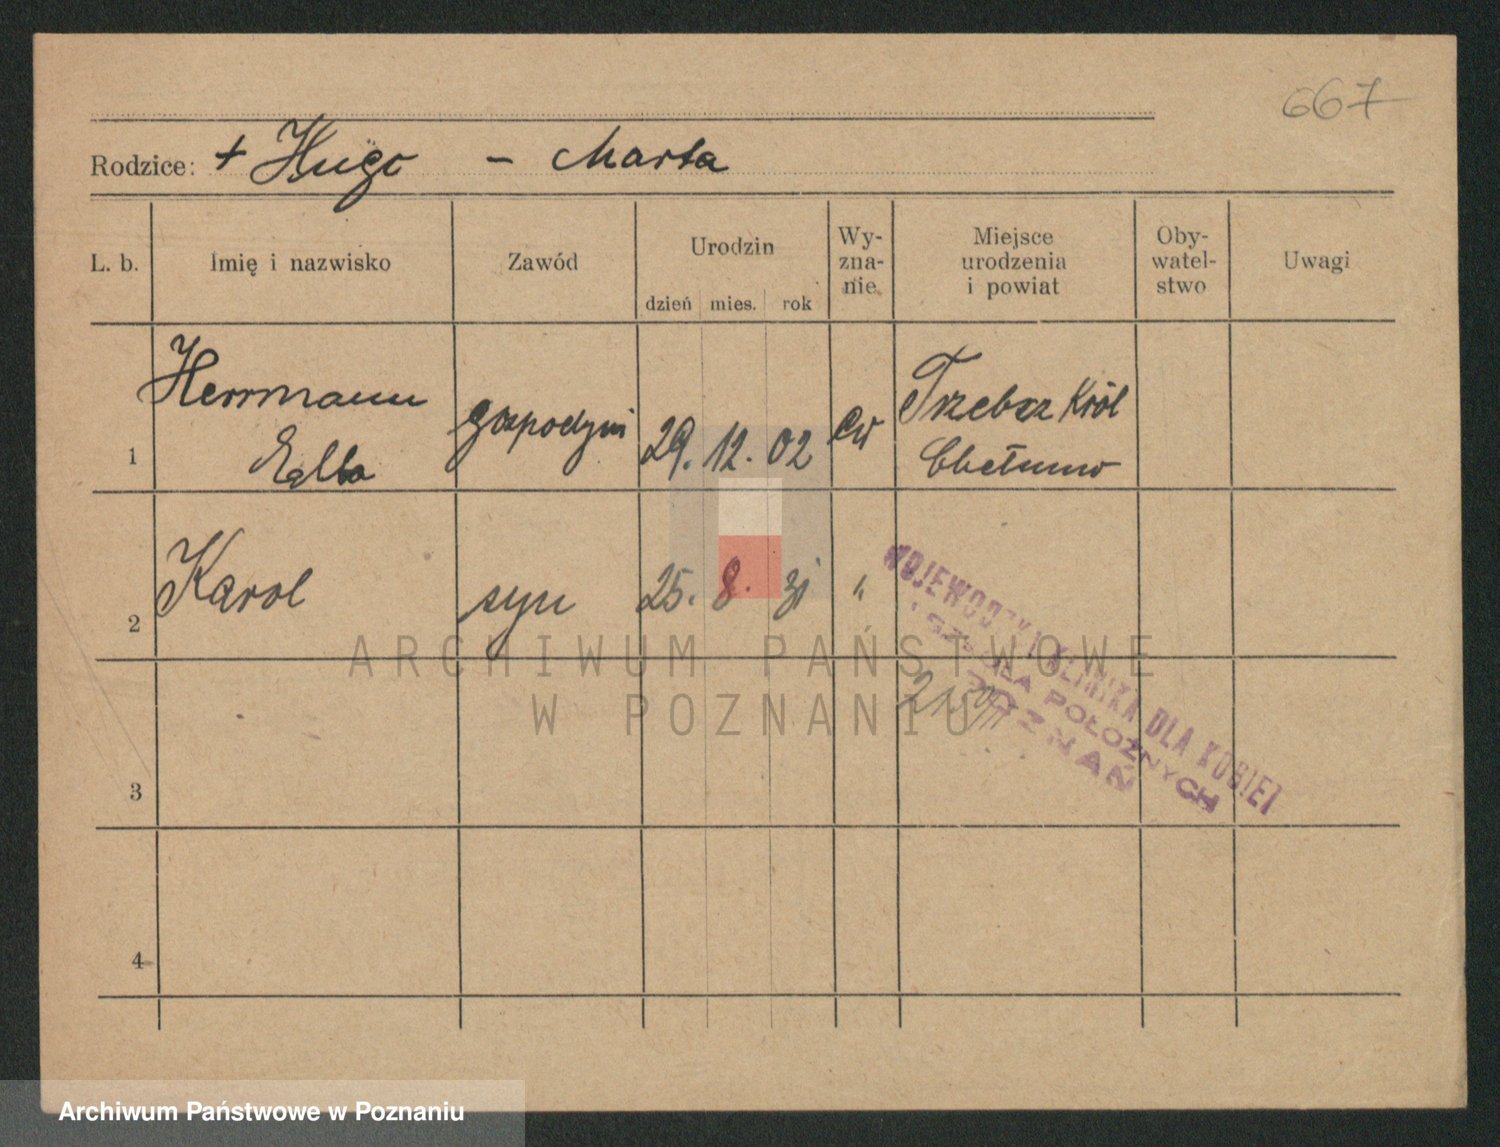 667
Rodzice: + Hugo - Marta
L. b.
Imię i nazwisko
Zawód
Urodzin
dzień mies. rok
Wy-
zna-
nie
Miejsce
urodzenia
i powiat
Oby-
watel-
stwo
Uwagi
1
Herrmann
gospodyni
29. 12. 02
ew
Trzebcz Król
Chełmno
2
Karol
syn
25. 8. 31
"
WOJEWÓDZKA KLINIKA DLA KOBIET
I SZKOŁA POŁOŻNYCH
POZNAŃ
3
4
ARCHIWUM PAŃSTWOWE
W POZNANIU
Archiwum Państwowe w Poznaniu